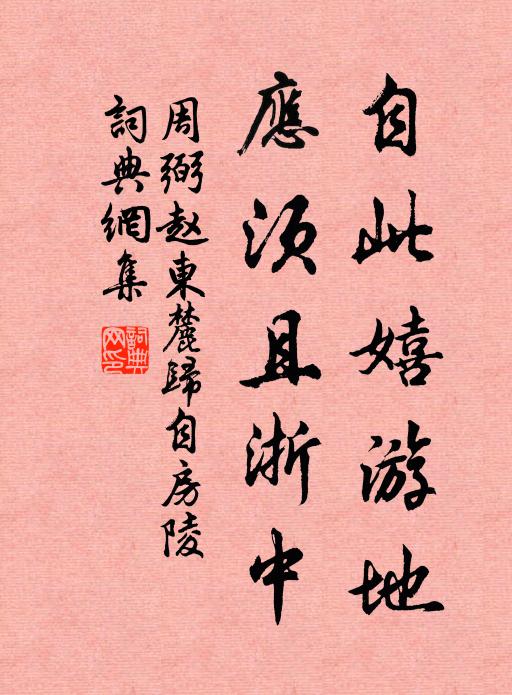 自此嬉游地
應須且浙中
周弼赵東麓歸自房陵
詞典網集
詞典网印